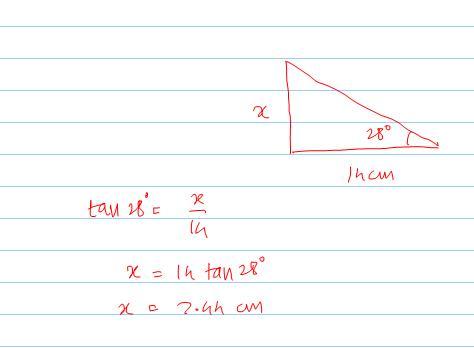 x
28°
14cm
tan 28° = x/14
x = 14 tan 28°
x = 7.44 cm